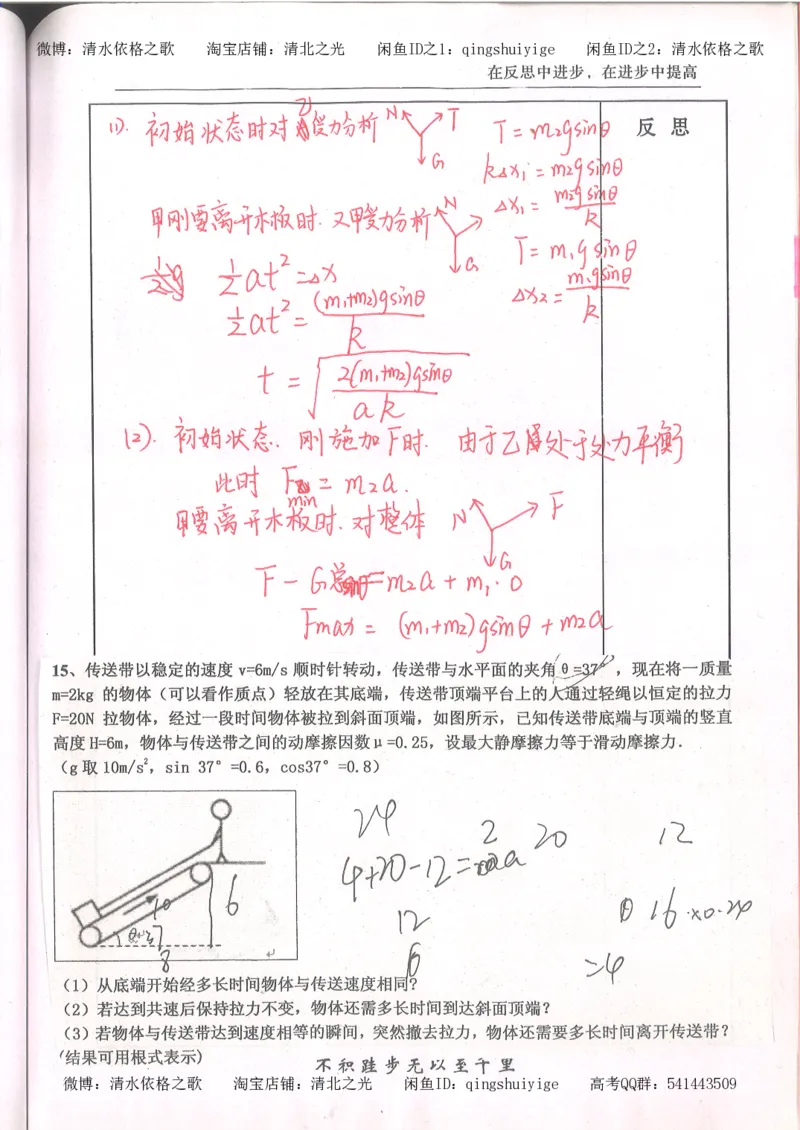 微博：清水依格之歌 淘宝店铺：清北之光 闲鱼ID之1：qingshuiyige 闲鱼ID之2：清水依格之歌
在反思中进步，在进步中提高
反 思
(1). 初始状态时对乙受力分析 N T G T = m₂gsinθ
kΔx₁ = m₂gsinθ
Δx₁ = m₂gsinθ / k
甲刚要离开木板时. 又甲受力分析 N G
T = m₁gsinθ
Δx₂ = m₁gsinθ / k
½at² = Δx
½at² = (m₁+m₂)gsinθ / k
t = √(2(m₁+m₂)gsinθ / ak)
(2). 初始状态. 刚施加F时. 由于乙处于处力平衡
此时 Fmin = m₂a.
甲要离开木板时. 对整体 N F G
F − G总sinθ = m₂a + m₁·0
Fmax = (m₁+m₂)gsinθ + m₂a
15、传送带以稳定的速度 v=6m/s 顺时针转动，传送带与水平面的夹角θ=37°，现在将一质量
m=2kg 的物体（可以看作质点）轻放在其底端，传送带顶端平台上的人通过轻绳以恒定的拉力
F=20N 拉物体，经过一段时间物体被拉到斜面顶端，如图所示，已知传送带底端与顶端的竖直
高度 H=6m，物体与传送带之间的动摩擦因数μ=0.25，设最大静摩擦力等于滑动摩擦力．
（g 取 10m/s²，sin 37°=0.6，cos37°=0.8）
24
4+20-12=2a 20 12
12
6
16×0.24
=4
10
6
θ=37
8
（1）从底端开始经多长时间物体与传送速度相同？
（2）若达到共速后保持拉力不变，物体还需多长时间到达斜面顶端？
（3）若物体与传送带达到速度相等的瞬间，突然撤去拉力，物体还需要多长时间离开传送带？
（结果可用根式表示）
不积跬步无以至千里
微博：清水依格之歌 淘宝店铺：清北之光 闲鱼ID：qingshuiyige 高考QQ群：541443509